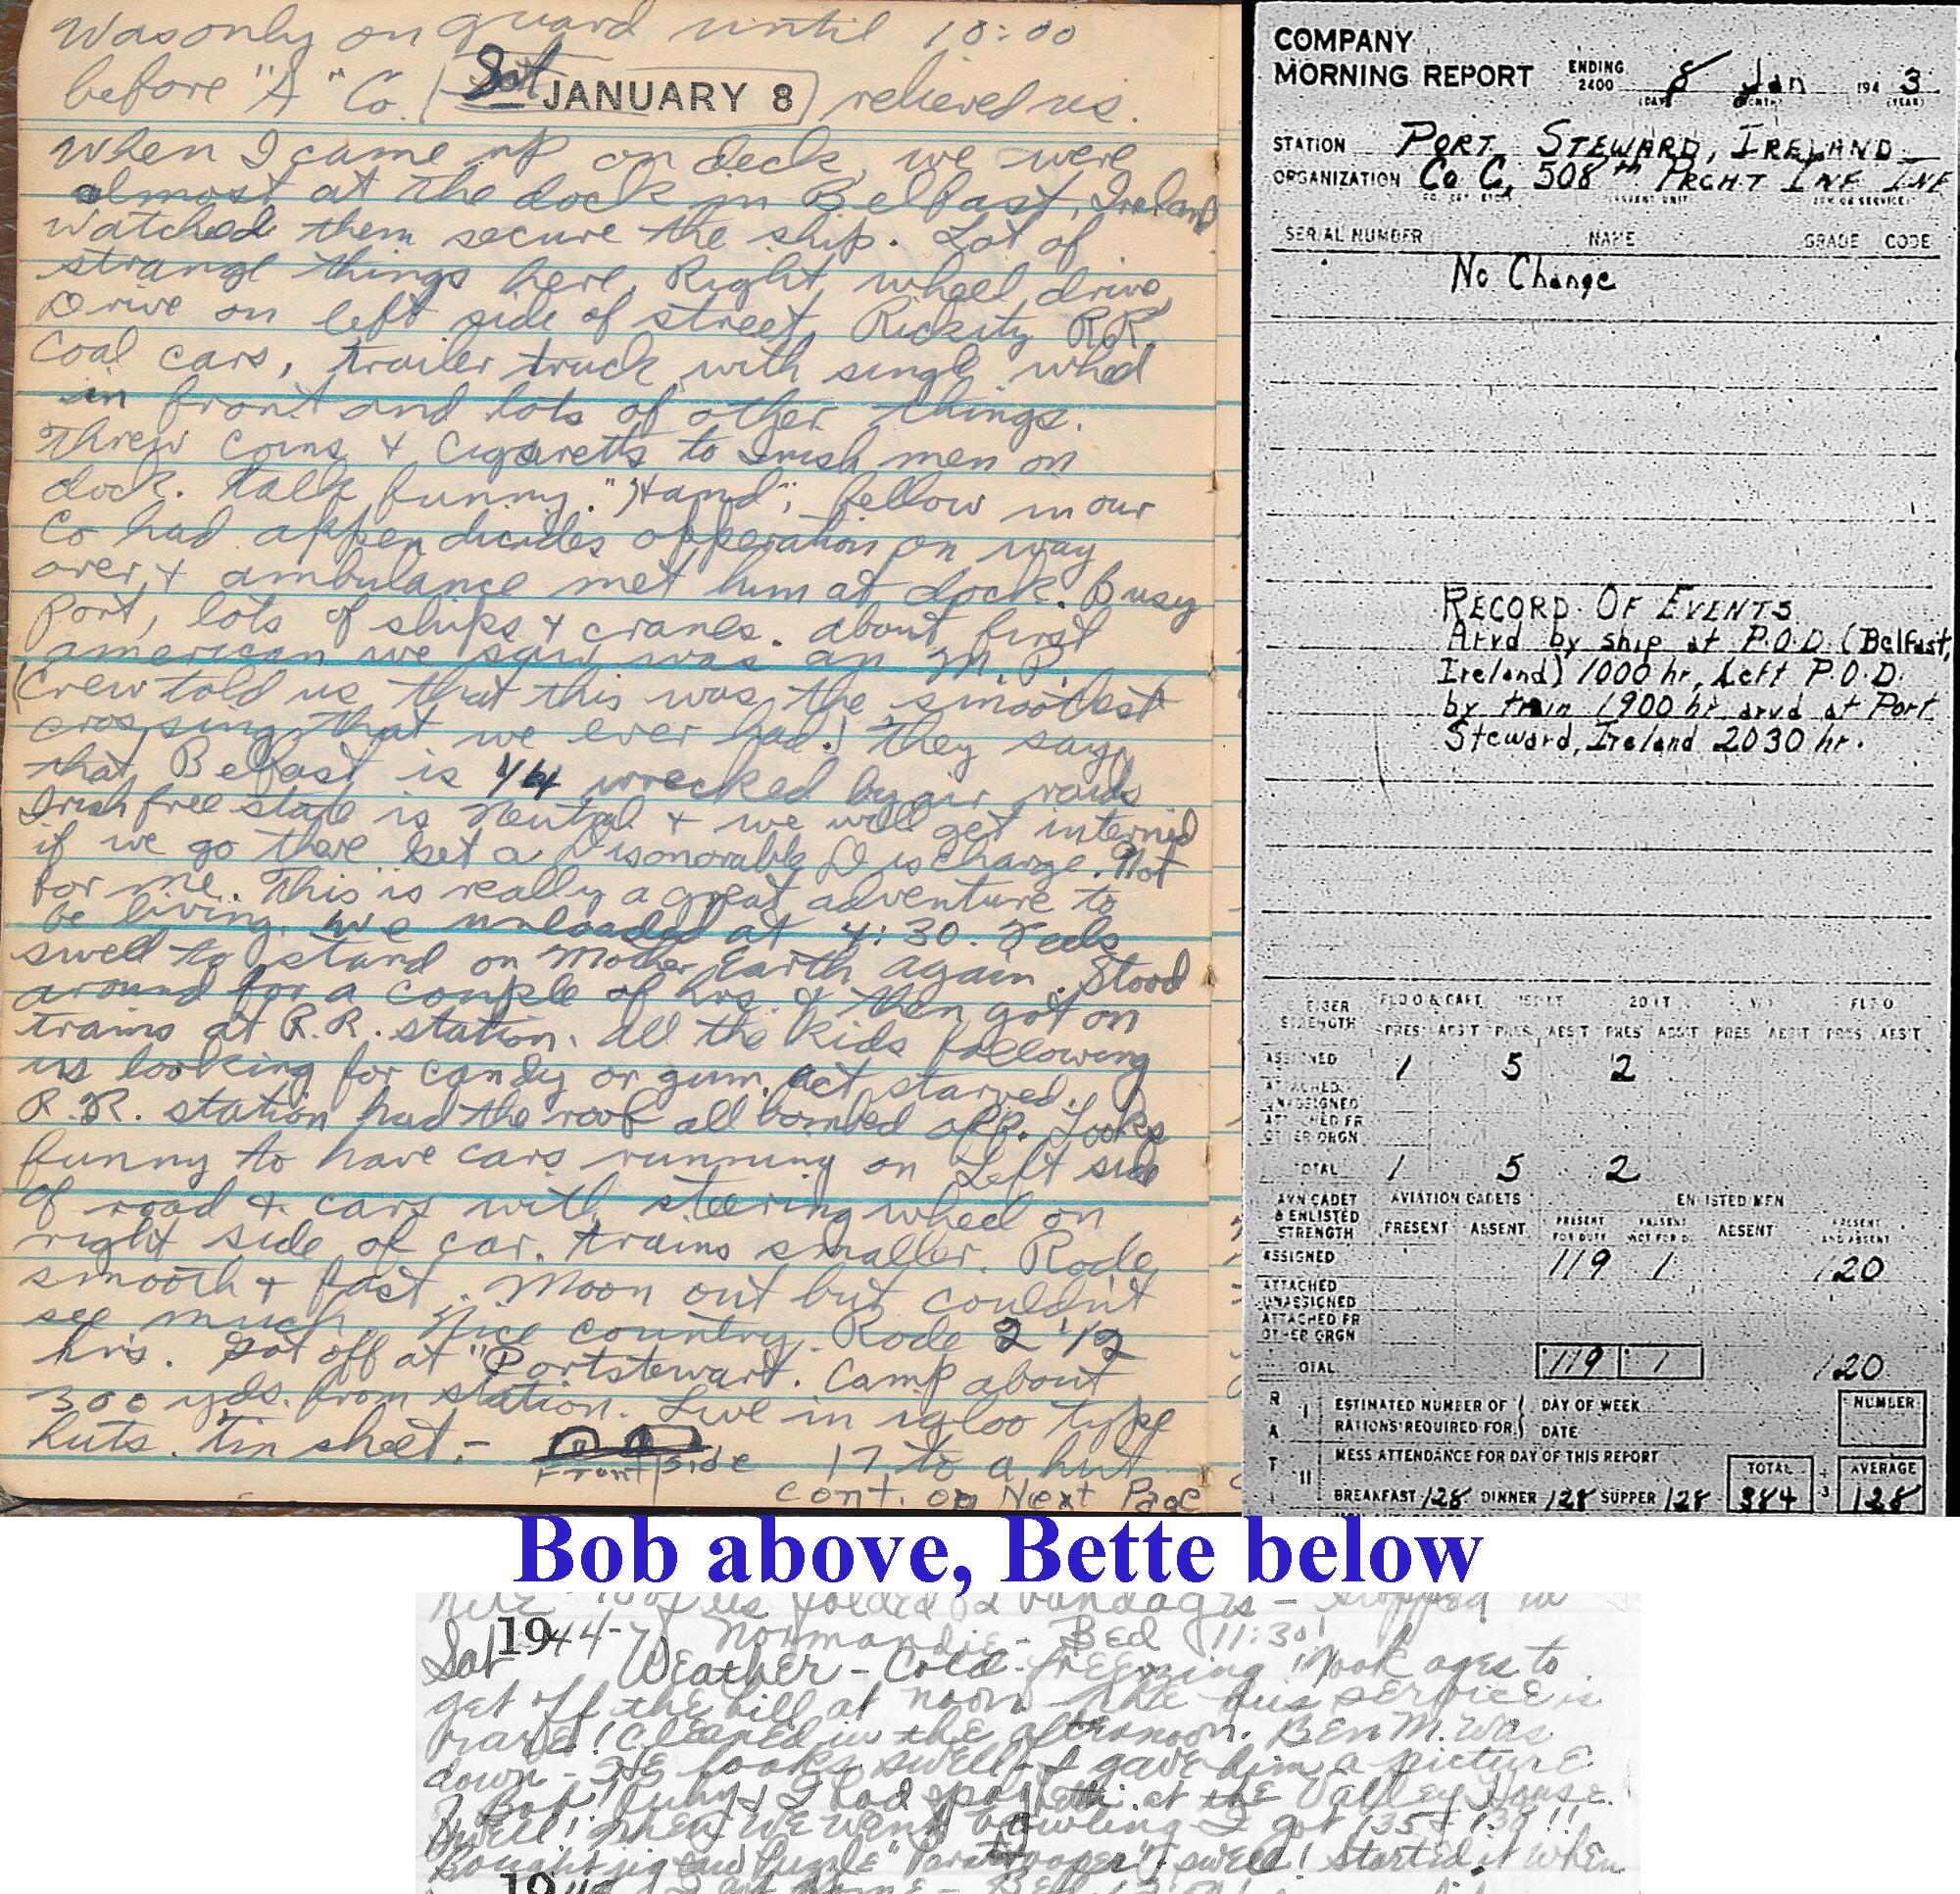 Was only on guard until 10:00
before "A" Co. (Sat JANUARY 8) relieved us.
When I came up on deck, we were
almost at the dock in Belfast, Ireland
Watched them secure the ship. Lot of
strange things here. Right wheel drive,
Drive on left side of street, Rickity RR,
Coal cars, trailer truck with single wheel
in front and lots of other things.
Threw coins & Cigaretts to Irish men on
dock. Talk funny. "Hand", fellow in our
Co had appendicides opperation on way
over & ambulance met him at dock. Busy
Port, lots of ships & cranes. About first
american we saw was an M.P.
(Crew told us that this was the smoothest
crossing that we ever had.) They say
that Belfast is 1/4 wrecked by air raids
Irish free state is Neutral & we will get interned
if we go there Get a Disonorable Discharge. Not
for me. This is really a great adventure to
be living. We unloaded at 4:30. Feels
swell to stand on Mother Earth again. Stood
around for a couple of hrs. & then got on
trains at R.R. station. All the kids following
us looking for candy or gum. Act starved.
R.R. station had the roof all bombed off. Looks
funny to have cars running on Left side
of road & cars with steering wheel on
right side of car. Trains smaller. Rode
smooth & fast. Moon out but couldn't
see much. Nice country. Rode 2 1/2
hrs. Got off at "Portstewart. Camp about
300 yds. from station. Live in igloo type
huts. Tin sheet.-
Front | Side 17 to a hut
cont. on Next Page
COMPANY
MORNING REPORT ENDING 2400 8 Jan 1943
(DAY) (MONTH) (YEAR)
STATION PORT STEWARD, IRELAND
ORGANIZATION Co C, 508th PRCHT INF INF
SERIAL NUMBER NAME GRADE CODE
No Change
RECORD OF EVENTS
Arvd by ship at P.O.D. (Belfast,
Ireland) 1000 hr, Left P.O.D.
by train 1900 hr arvd at Port
Steward, Ireland 2030 hr.
STRENGTH PRES ABS'T PRES ABS'T PRES ABS'T PRES ABS'T PRES ABS'T
ASSIGNED 1 5 2
TOTAL 1 5 2
AVN CADET & ENLISTED STRENGTH
AVIATION CADETS ENLISTED MEN
PRESENT ABSENT PRESENT FOR DUTY PRESENT NOT FOR D. ABSENT PRESENT AND ABSENT
ASSIGNED 119 1 120
ATTACHED UNASSIGNED
ATTACHED FR OTHER ORGN
TOTAL 119 1 120
ESTIMATED NUMBER OF DAY OF WEEK NUMBER
RATIONS REQUIRED FOR DATE
MESS ATTENDANCE FOR DAY OF THIS REPORT TOTAL AVERAGE
BREAKFAST 128 DINNER 128 SUPPER 128 384 ÷ 3 128
Bob above, Bette below
of us folded bandages - stopped in
1944- Normandie - Bed 11:30!
Sat Weather - Cold - freezing! Took ages to
get off the hill at noon - the bus service is
Cleaned in the afternoon. Ben M. was
down - He looks swell - I gave him a picture
of Bob! & I had spaghetti at the Valley House.
Swell! Then we went bowling - I got 135 & 138!!
Bought jigsaw Puzzle "Paratrooper" - swell! Started it when
19